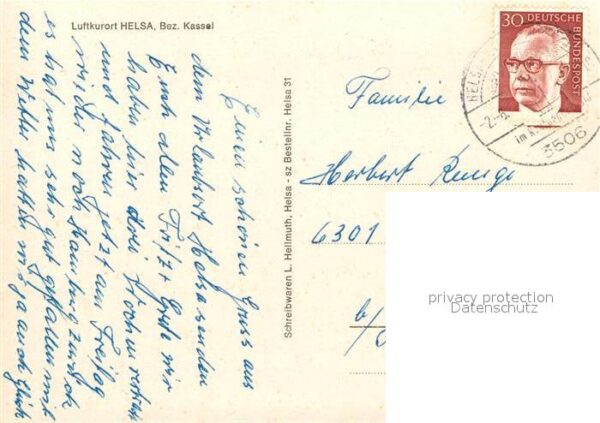 Luftkurort HELSA, Bez. Kassel
Einen schönen Gruss aus
dem Urlaubsort Helsa senden
Euch allen Fritz + Grete wir
haben hier drei Wochen verlebt
und fahren jetzt am Freitag
wieder nach Hamburg zurück
es hat uns sehr gut gefallen mit
dem Wetter hatten wir ja auch Glück
Schreibwaren L. Hellmuth, Helsa - sz Bestellnr. Helsa 31
30 DEUTSCHE
BUNDESPOST
HELSA
3506
Familie
Herbert Runge
6301
b/
privacy protection
Datenschutz